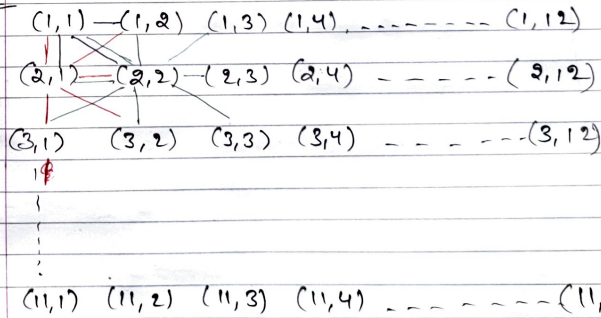 (1,1) — (1,2) (1,3) (1,4) - - - - - - - - (1,12)
(2,1) = (2,2) - (2,3) (2,4) - - - - - (2,12)
(3,1) (3,2) (3,3) (3,4) - - - - - - - (3,12)
(11,1) (11,2) (11,3) (11,4) - - - - - - - (11,